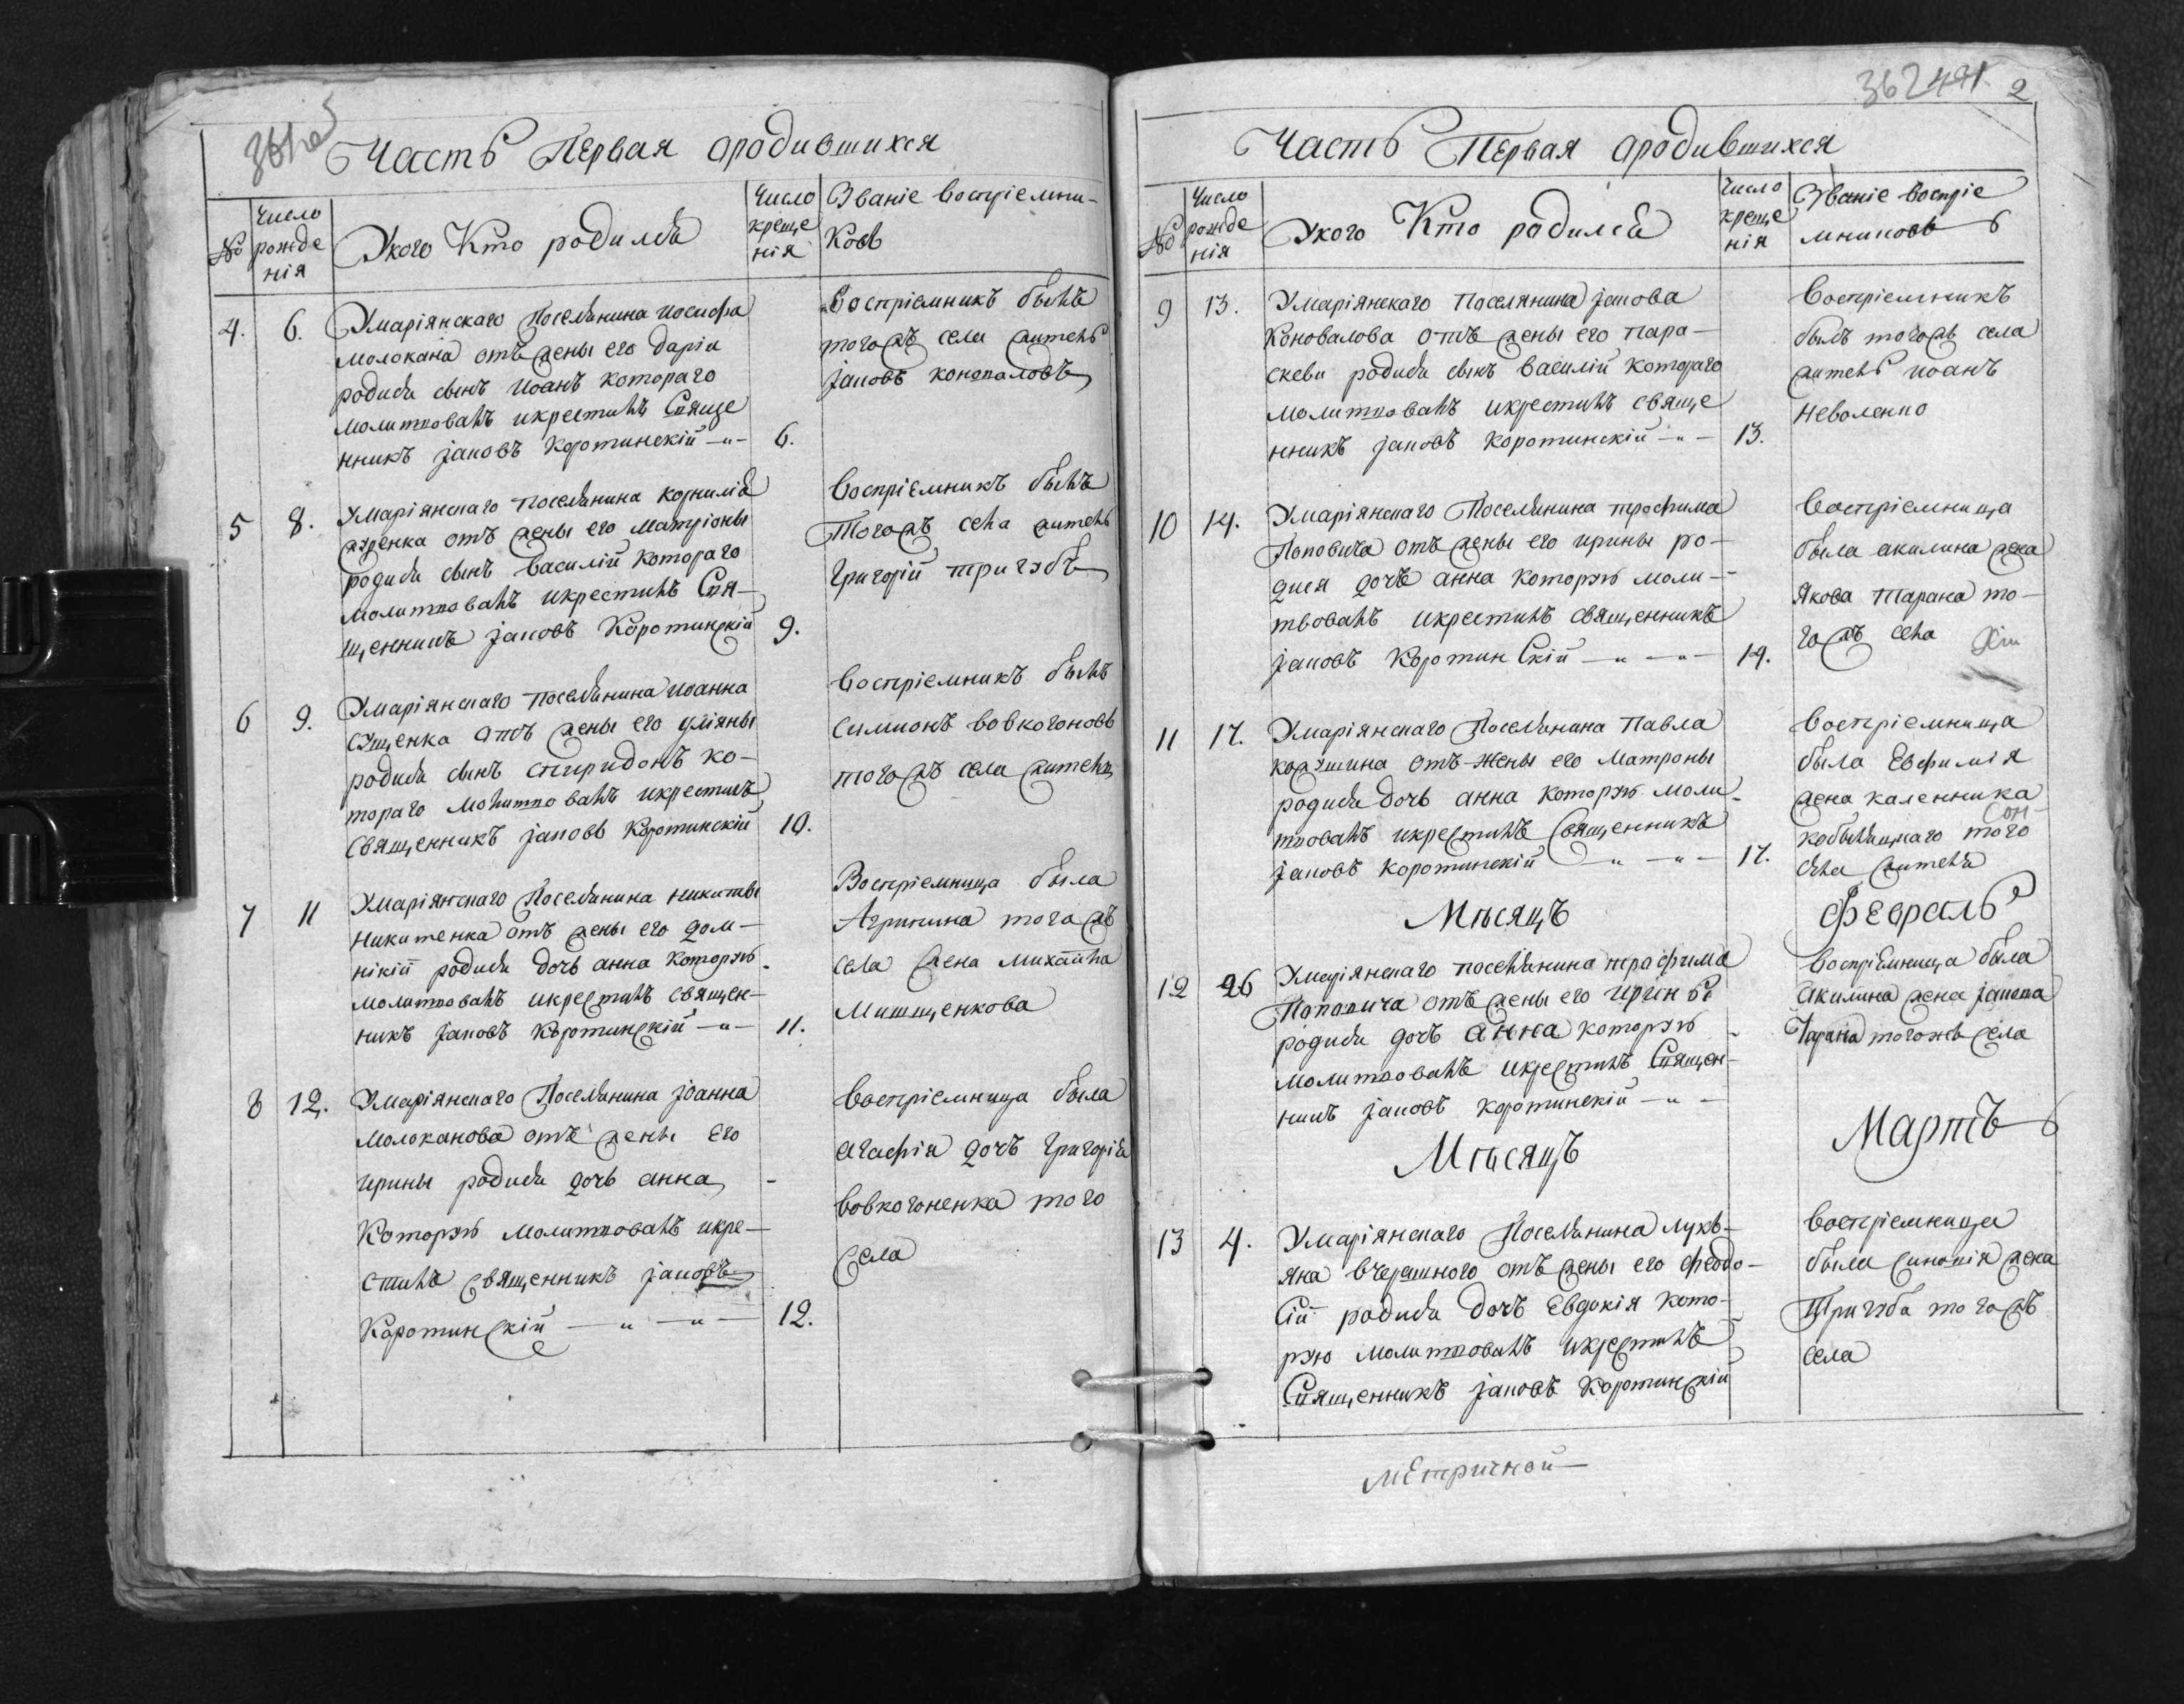 Часть Первая ородившихся
№
Число рожде нія
Укого Кто родился
Число креще нія
Званіе Воспріемни-
ковъ
4.
6.
Умаріянскаго Поселянина иосифа
молокана отъ жены его даріи
родился сынъ иоанъ котораго
молитвовалъ икрестилъ Свяще
нникъ Іаковъ Коротинскій -"-
6.
Воспріемникъ былъ
тогожъ села житель
Іаковъ коноваловъ
5
8.
Умаріянскаго поселянина корнилія
отъ жены его матріоны
родился сынъ василій котораго
молитвовалъ икрестилъ Свя-
щенникъ Іаковъ Коротинскій
9.
Воспріемникъ былъ
Тогожъ села житель
Григорій тригубъ
6
9.
Умаріянскаго поселянина иоанна
сущенка отъ жены его уліяны
родился сынъ спиридонъ ко-
тораго молитвовалъ икрестилъ
священникъ Іаковъ Коротинскій
10.
Воспріемникъ былъ
симионъ вовкогоновъ
тогожъ села житель
7
11
Умаріянскаго Поселянина никиты
никитенка отъ жены его дом-
нікіи родися дочь анна которую
молитвовалъ икрестилъ священ-
никъ Іаковъ Коротинскій -"-
11.
Воспріемница была
Агрипина тогожъ
села жена михаила
Мишщенкова
8
12.
Умаріянскаго Поселянина Іоанна
молоканова отъ жены его
ирины родися дочь анна
Которую молитвовалъ икре-
стилъ священникъ Іаковъ
Коротинскій -"-"-
12.
Воспріемница была
агафія дочъ Григорія
вовкогоненка того
села
362491 2
Часть Первая ородившихся
№
Число рожде нія
Укого Кто родился
Число креще нія
Званіе Воспріе
мниковъ
9
13.
Умаріянскаго поселянина Іакова
Коновалова отъ жены его пара-
скеви родися сынъ василій котораго
молитвовалъ икрестилъ свяще
нникъ Іаковъ коротинскій -"-
13.
Воспріемникъ
былъ тогожъ села
житель иоанъ
неволенко
10
14.
Умаріянскаго Поселянина трофима
Поповича отъ жены его ирины ро-
дися дочъ анна которую моли-
твовалъ икрестилъ священникъ
Іаковъ Коротинскій -"-"-
14.
Воспріемница
была акилина жена
Якова тарана то-
гожъ села
11
17.
Умаріянскаго Поселянина Павла
отъ жены его Матроны
родися дочь анна которую моли-
твовалъ икрестилъ Священникъ
Іаковъ коротинскій -"-"-
17.
Воспріемница
была Евфимія
жена каленника
того
села жителя
Мѣсяцъ
Февраль
12
26
Умаріянскаго поселянина трафима
Поповича отъ жены его ирины
родися дочъ анна которую
молитвовалъ икрестилъ Священ-
никъ Іаковъ коротинскій -"-
Воспріемница была
Акилина жена Іакова
Тарана тогожъ села
Мѣсяцъ
Мартъ
13
4.
Умаріянскаго Поселянина лукь-
яна вчерашного отъ жены его феодо-
сіи родися дочъ Евдокія кото-
рую молитвовалъ икрестилъ
Священникъ Іаковъ Коротинскій
Воспріемница
была жена
Тригуба тогожъ
села
метричной